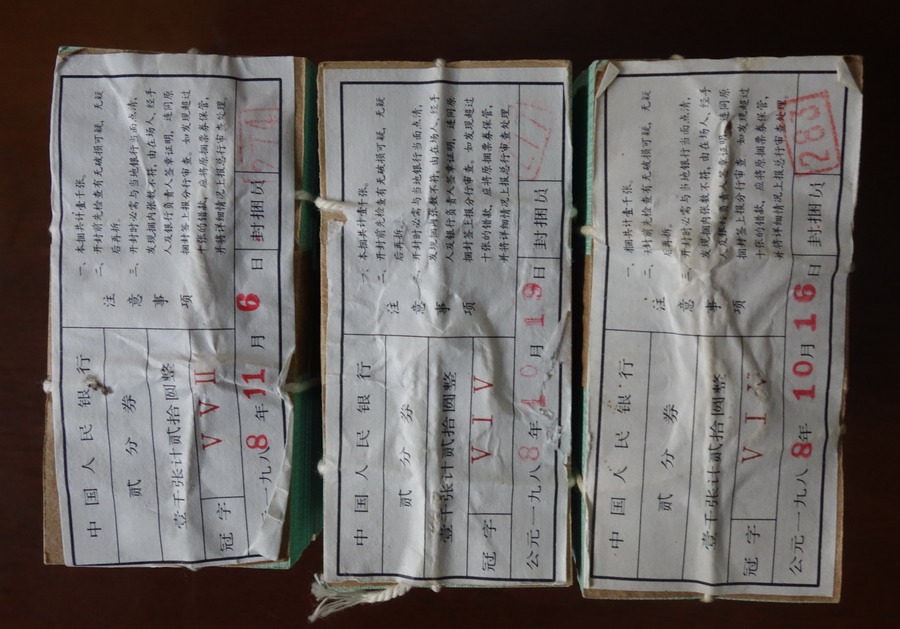 中国人民银行
贰分券
壹千张计贰拾圆整
冠字 V V II
元一九八8年11月6日 封捆员
注意事项
一、本捆共计壹千张。
二、开封前先检查有无破损可疑，无疑
后再拆。
三、开封时必需与当地银行当面点清，
发现捆内张数不符，由在场人、经手
人及银行负责人签章证明，连同原
捆封签上报分行审查。如发现超过
十张的错款，应将原捆票券保管，
并将详细情况上报总行审查处理。
中国人民银行
贰分券
壹千张计贰拾圆整
冠字 V I V
公元一九八8年10月19日 封捆员
注意事项
一、本捆共计壹千张。
二、开封前先检查有无破损可疑，无疑
后再拆。
三、开封时必需与当地银行当面点清，
发现捆内张数不符，由在场人、经手
人及银行负责人签章证明，连同原
捆封签上报分行审查。如发现超过
十张的错款，应将原捆票券保管，
并将详细情况上报总行审查处理。
中国人民银行
贰分券
壹千张计贰拾圆整
冠字 V I V
公元一九八8年10月16日 封捆员 283
注意事项
一、捆共计壹千张。
二、开封前先检查有无破损可疑，无疑
后再拆。
三、开封时必需与当地银行当面点清，
发现捆内张数不符，由在场人、经手
人及银行负责人签章证明，连同原
捆封签上报分行审查。如发现超过
十张的错款，应将原捆票券保管，
并将详细情况上报总行审查处理。